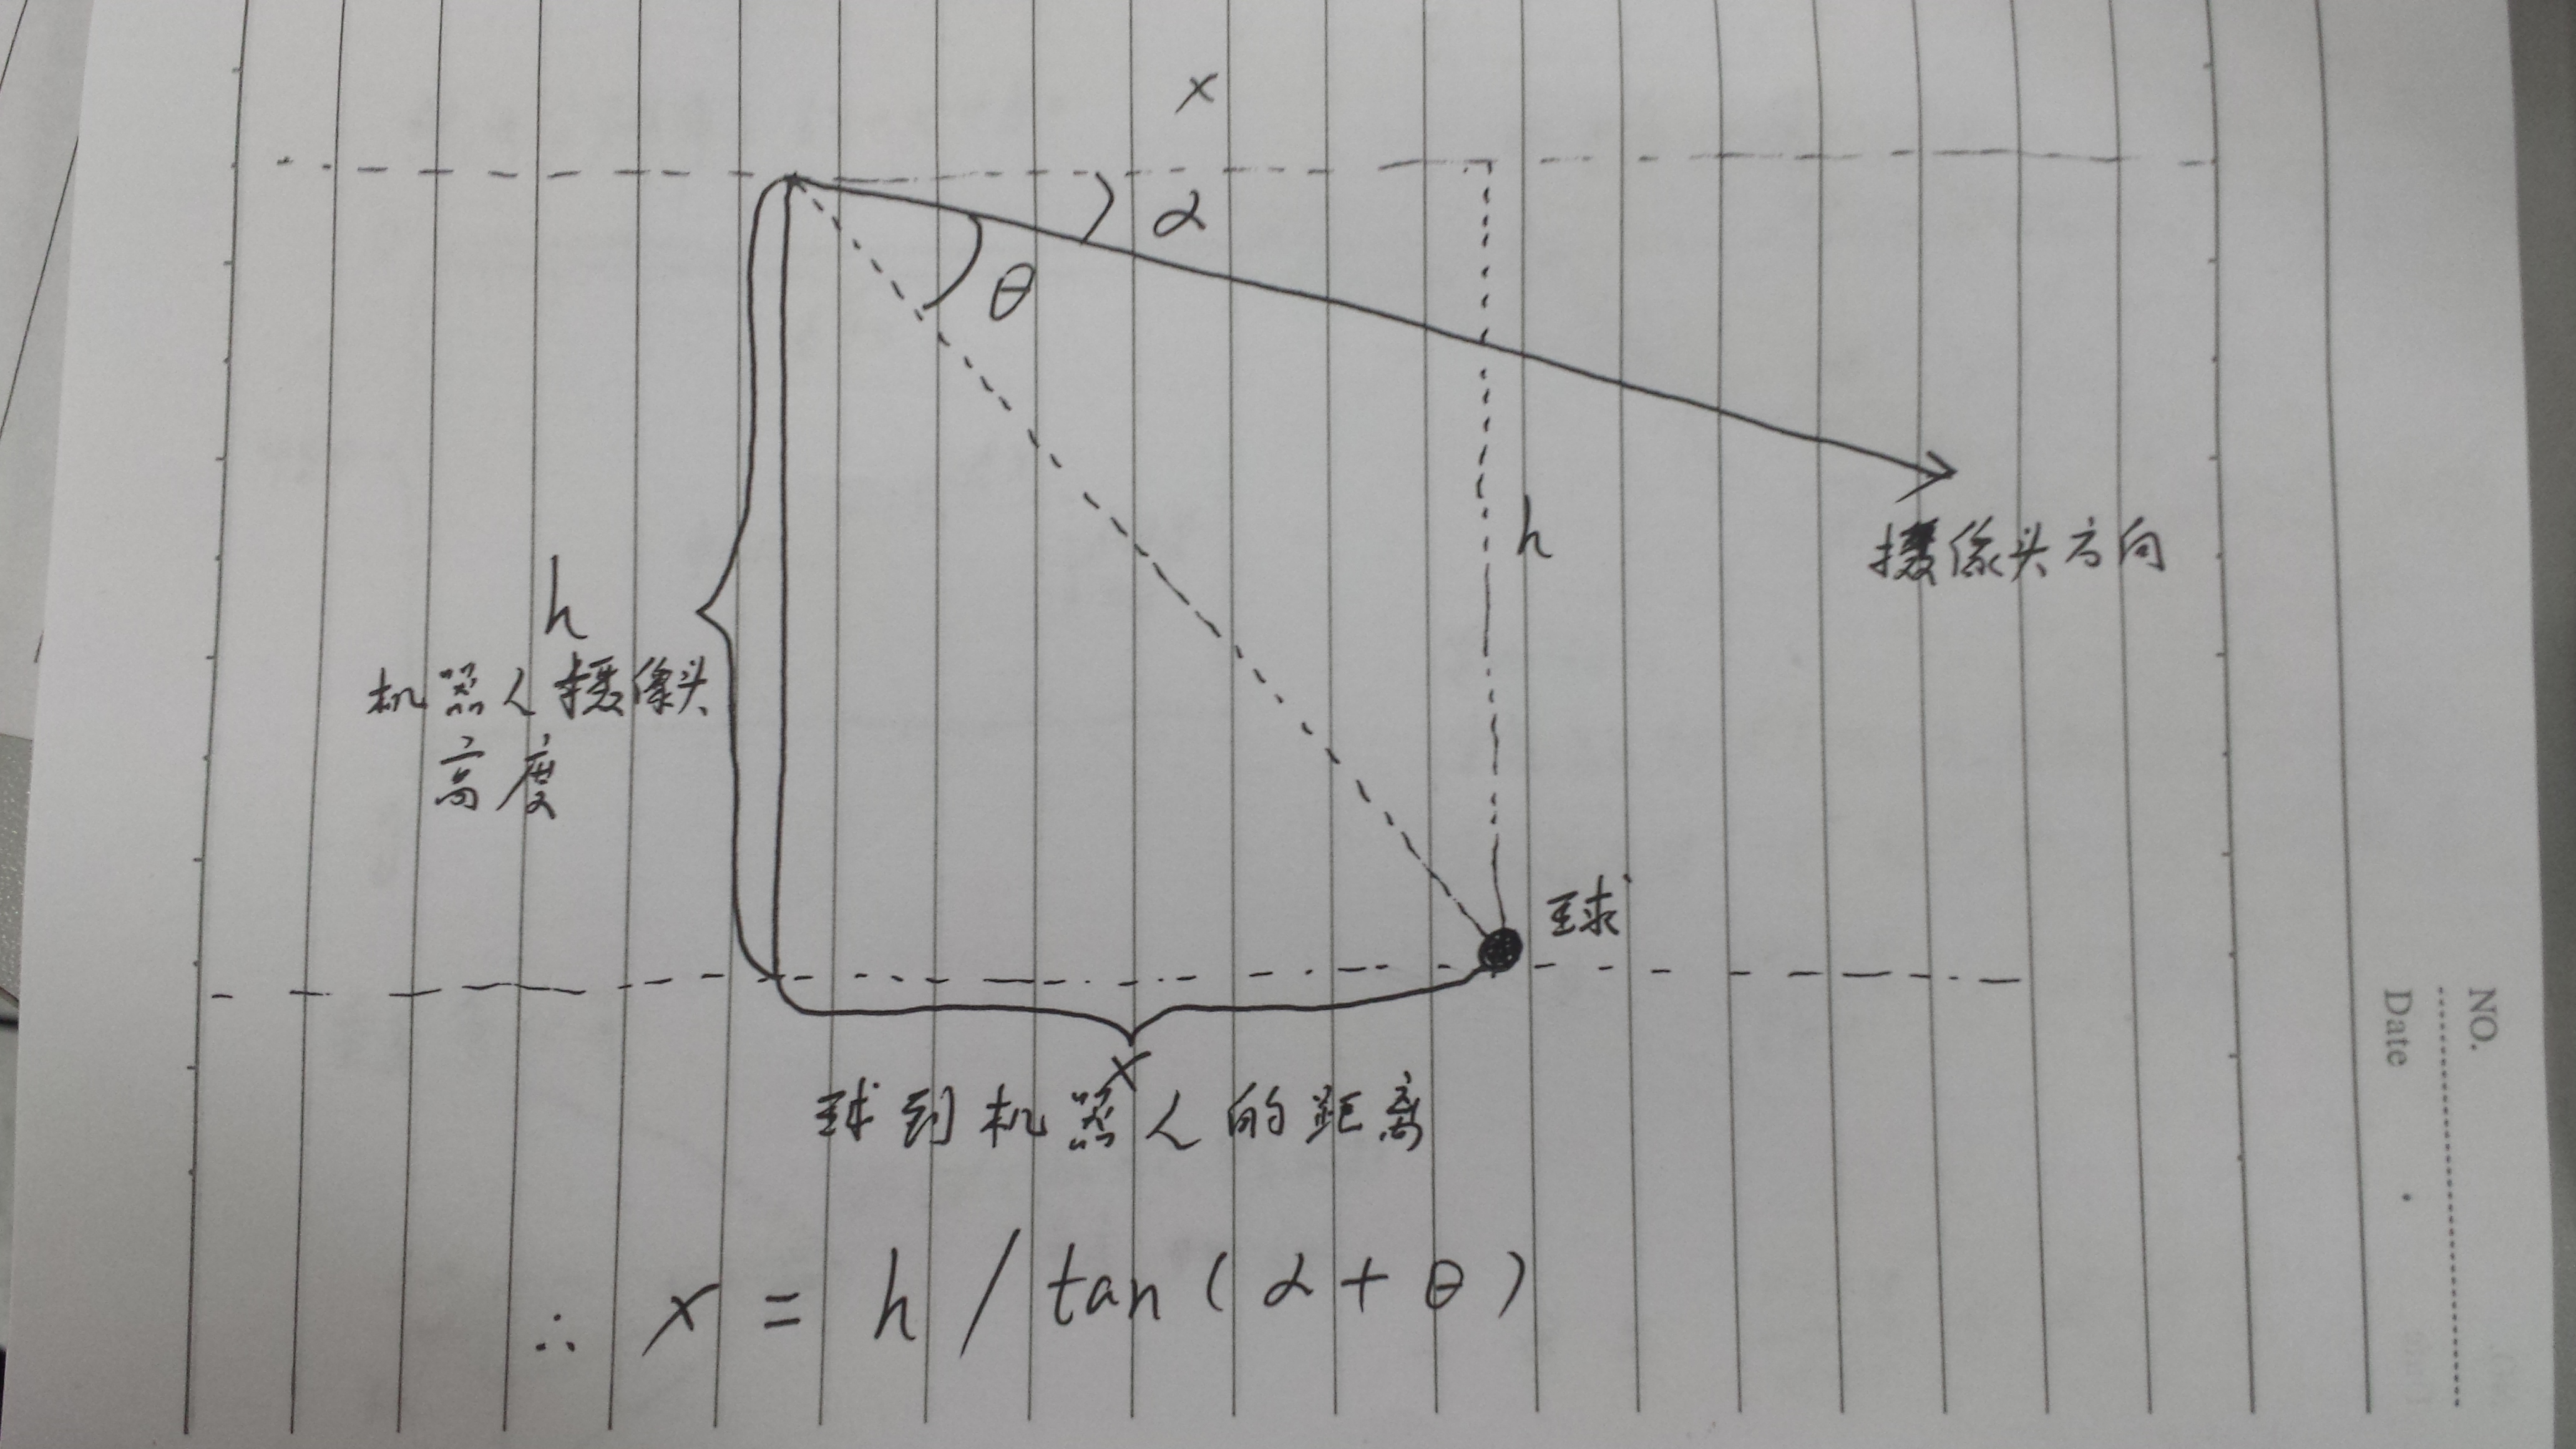 x
α
θ
h
摄像头方向
h
机器人摄像头
高度
球
x
球到机器人的距离
∴ x = h / tan(α+θ)
NO.
Date